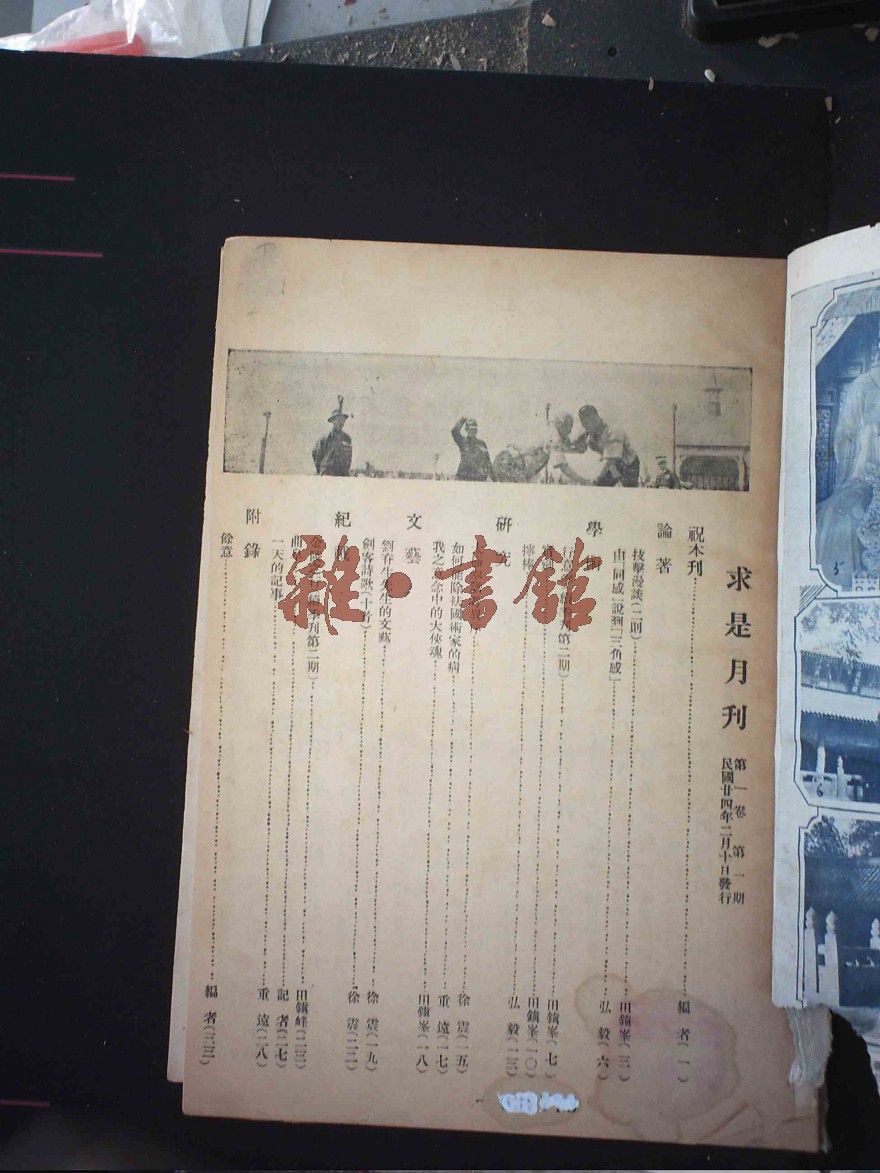 求是月刊
第一卷 第一期
民國廿四年二月十日發行
祝本刊 編者(一)
論著
技擊漫談(二則) 田鎭峯(二)
由「同感」說到「三角感」 弘毅(六)
學
行意 刊第二期) 田鎭峯(七)
田鎭峯(一〇)
摔棒 弘毅(一三)
研究
徐震(一五)
如何 除 國術家的病 重遠(一七)
我之意念中的大俠魂 田鎭峯(一八)
文藝
劉春生先生的文蓺 徐震(一九)
劍客詩歌(十首) 徐震(二二)
紀
刊第二期) 田鎭峰(二三)
記者(二七)
一天的記事 重遠(二八)
附錄
餘意 編者(三三)
雜·書館
5
6